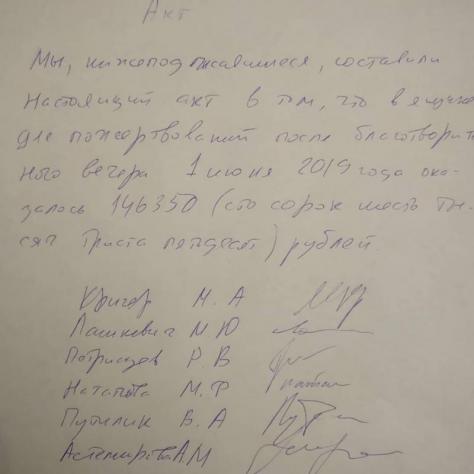 Акт
Мы, нижеподписавшиеся, составили
настоящий акт в том, что в ящике
для пожертвований после благотворитель
ного вечера 1 июня 2019 года ока-
залось 146350 (сто сорок шесть ты-
сяч триста пятдесят) рублей.
М. А
Лашкевич М Ю
Р. В
М. Ф
Путилик В. А
А М